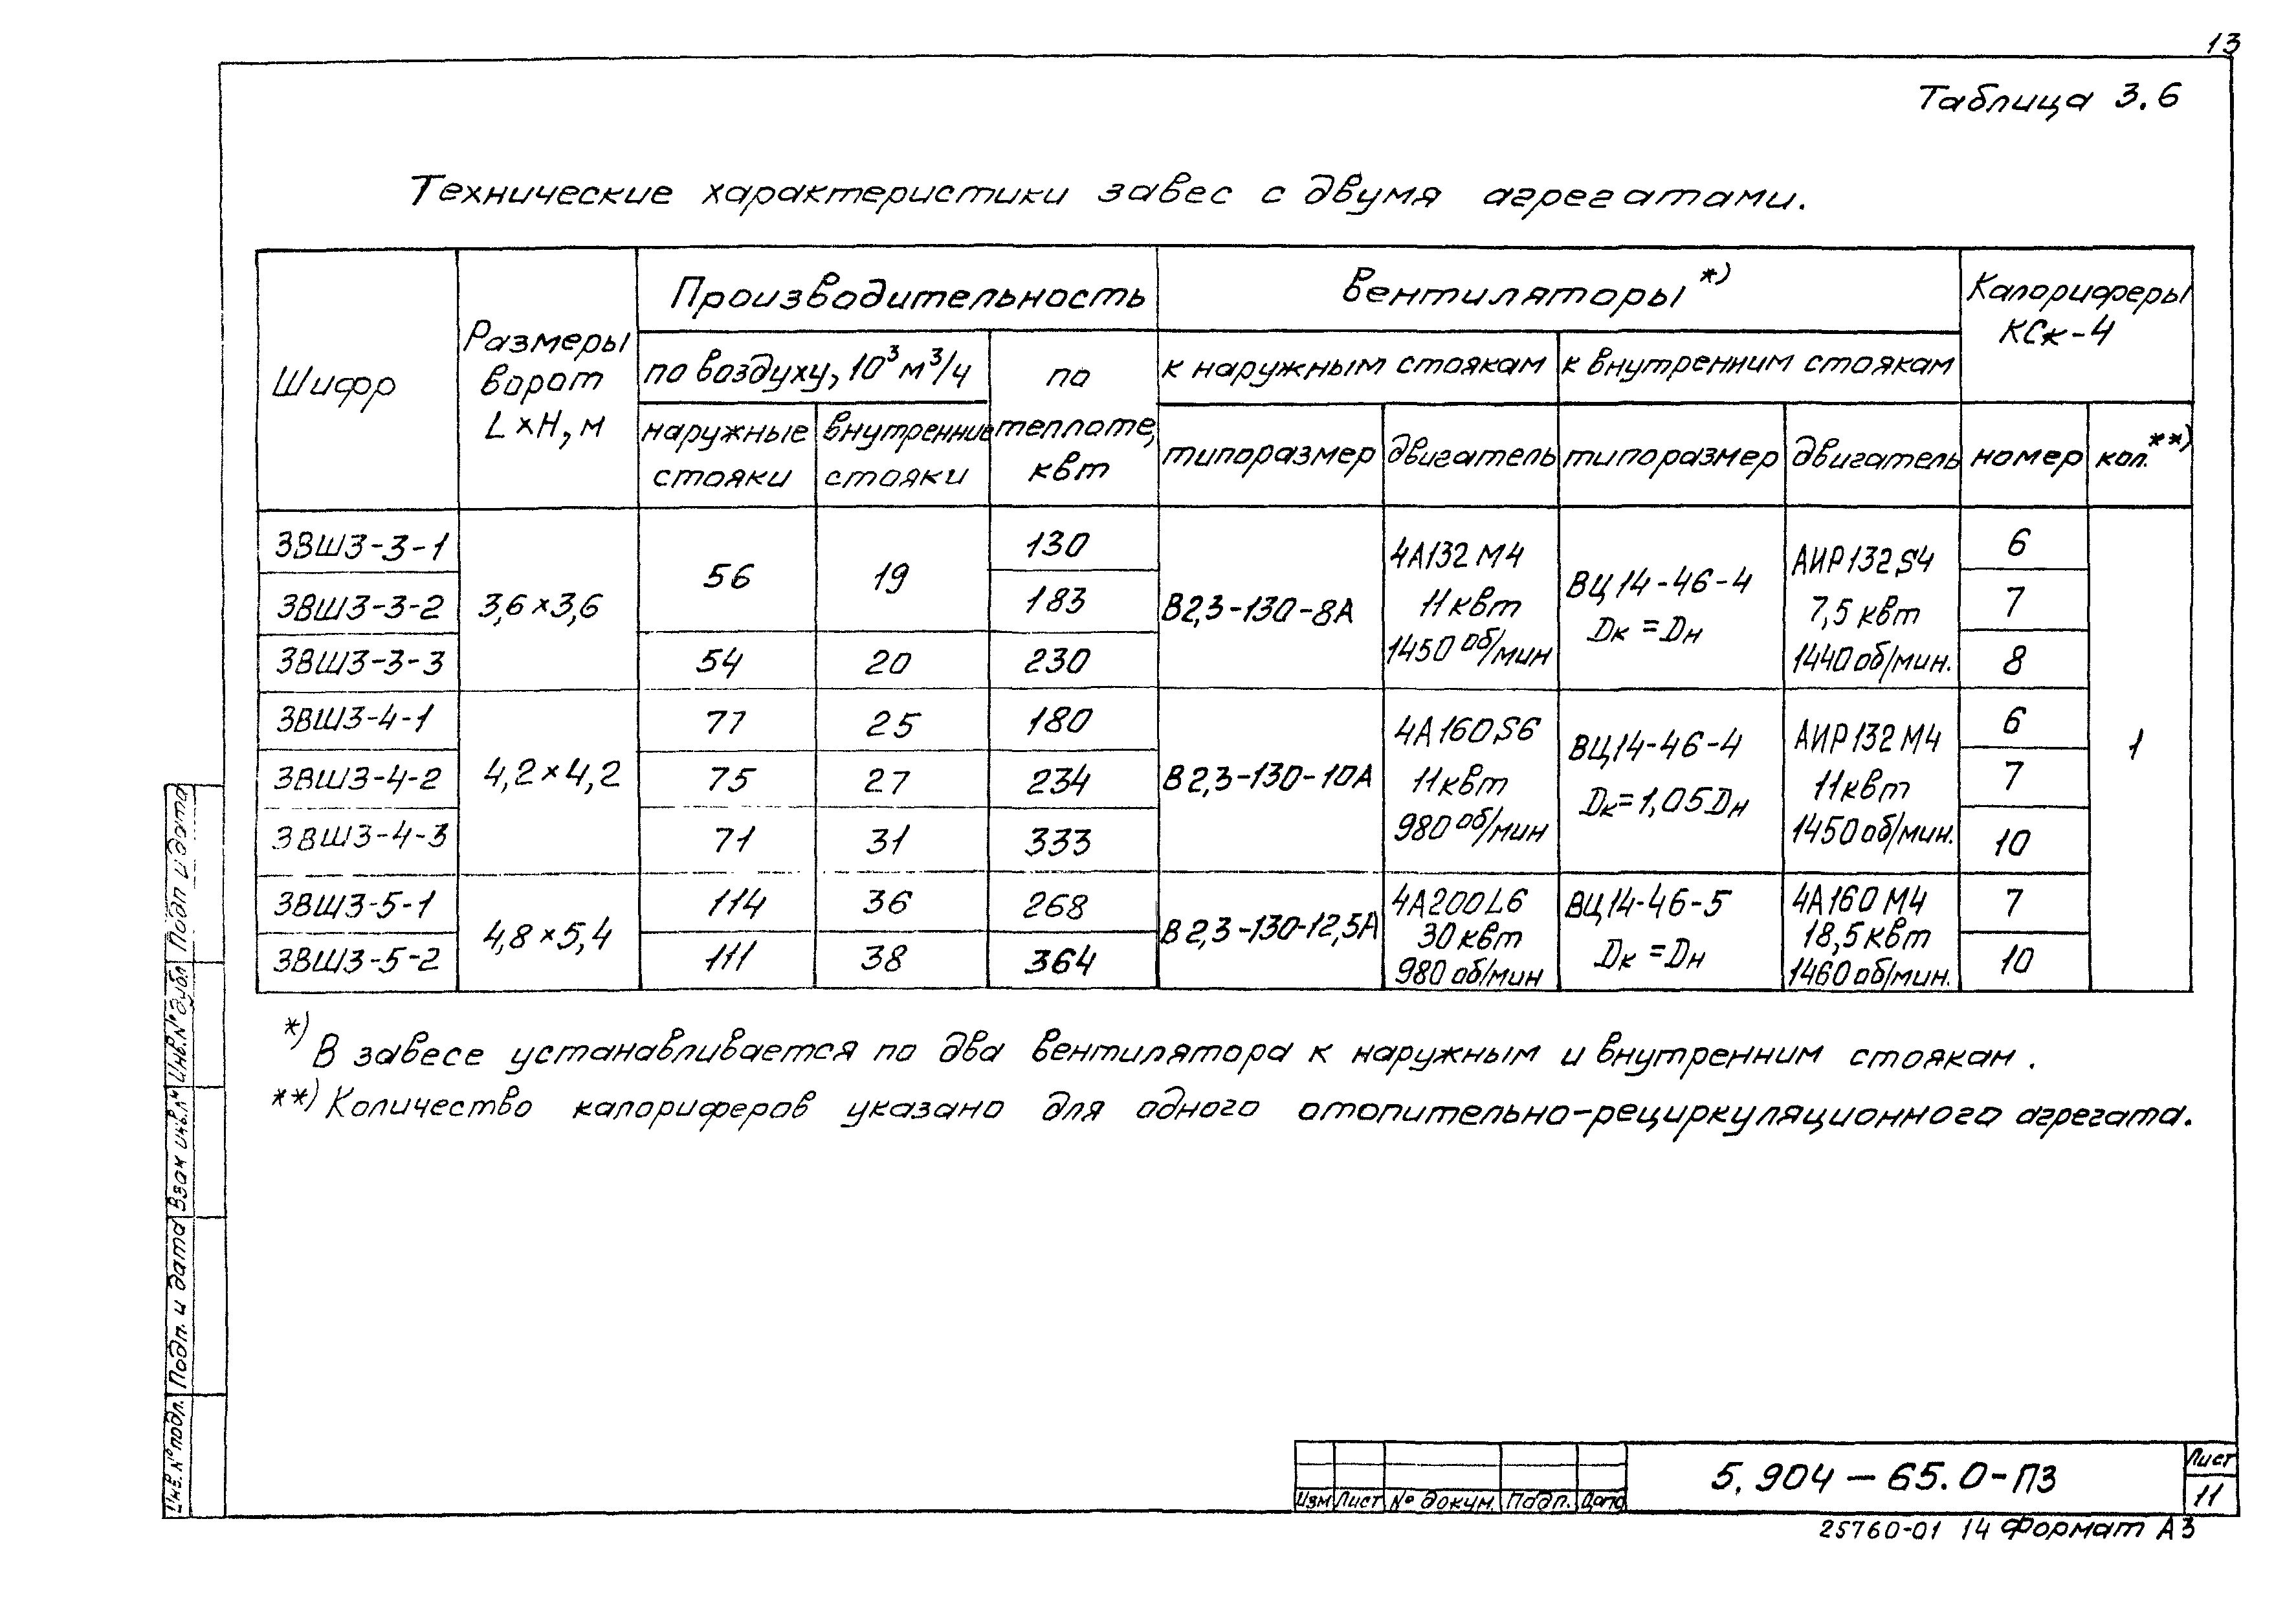 13
Таблица 3.6
Технические характеристики завес с двумя агрегатами.
Шифр
Размеры
ворот
L×H, м
Производительность
по воздуху, 10³ м³/ч
наружные
стояки
внутренние
стояки
по
теплоте,
квт
Вентиляторы *)
к наружным стоякам
к внутренним стоякам
типоразмер
двигатель
типоразмер
двигатель
Калориферы
КСк-4
номер
кол. **)
ЗВШ3-3-1
ЗВШ3-3-2
ЗВШ3-3-3
3,6×3,6
56
19
54
20
130
183
230
В2,3-130-8А
4А132М4
11квт
1450 об/мин
ВЦ14-46-4
Dк=Dн
АИР132S4
7,5 квт
1440 об/мин.
6
7
8
ЗВШ3-4-1
ЗВШ3-4-2
ЗВШ3-4-3
4,2×4,2
77 25 180
75 27 234
71 31 333
В2,3-130-10А
4А160S6
11квт
980 об/мин
ВЦ14-46-4
Dк=1,05Dн
АИР132М4
11квт
1450 об/мин.
6
7
10
1
ЗВШ3-5-1
ЗВШ3-5-2
4,8×5,4
114 36 268
111 38 364
В2,3-130-12,5А
4А200L6
30квт
980 об/мин
ВЦ14-46-5
Dк=Dн
4А160М4
18,5квт
1460 об/мин.
7
10
*) В завесе устанавливается по два вентилятора к наружным и внутренним стоякам.
**) Количество калориферов указано для одного отопительно-рециркуляционного агрегата.
Инв.№подл.
Подп. и дата
Взам инв.№
Инв.№дубл
Подп и дата
Изм Лист № докум. Подп. Дата
5.904-65.0-ПЗ
Лист
11
25760-01 14 Формат А3